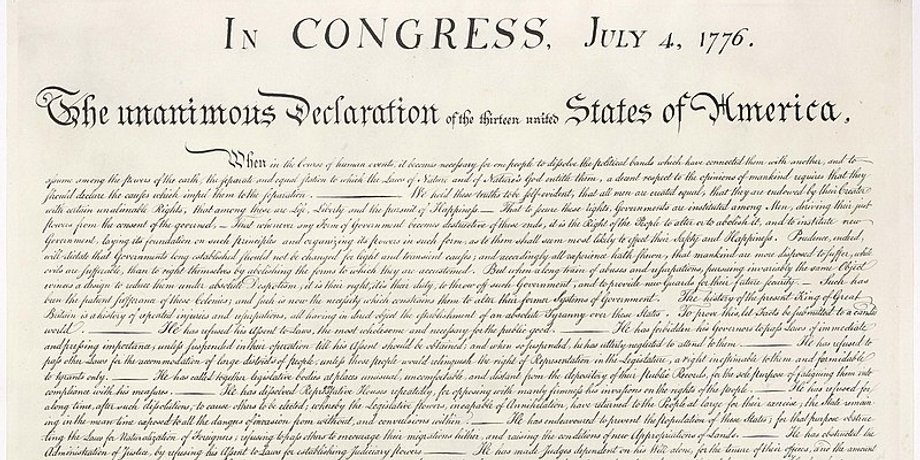 IN CONGRESS, JULY 4, 1776.
The unanimous Declaration of the thirteen united States of America,
When in the Course of human events, it becomes necessary for one people to dissolve the political bands which have connected them with another, and to
assume among the powers of the earth, the separate and equal station to which the Laws of Nature and of Nature's God entitle them, a decent respect to the opinions of mankind requires that they
should declare the causes which impel them to the separation. ——— We hold these truths to be self-evident, that all men are created equal, that they are endowed by their Creator
with certain unalienable Rights, that among these are Life, Liberty and the pursuit of Happiness — That to secure these rights, Governments are instituted among Men, deriving their just
powers from the consent of the governed, — That whenever any Form of Government becomes destructive of these ends, it is the Right of the People to alter or to abolish it, and to institute new
Government, laying its foundation on such principles and organizing its powers in such form, as to them shall seem most likely to effect their Safety and Happiness. Prudence, indeed,
will dictate that Governments long established should not be changed for light and transient causes; and accordingly all experience hath shewn, that mankind are more disposed to suffer, while
evils are sufferable, than to right themselves by abolishing the forms to which they are accustomed. But when a long train of abuses and usurpations, pursuing invariably the same Object
evinces a design to reduce them under absolute Despotism, it is their right, it is their duty, to throw off such Government, and to provide new Guards for their future security. — Such has
been the patient sufferance of these Colonies; and such is now the necessity which constrains them to alter their former Systems of Government. The history of the present King of Great
Britain is a history of repeated injuries and usurpations, all having in direct object the establishment of an absolute Tyranny over these States. To prove this, let Facts be submitted to a candid
world. ——— He has refused his Assent to Laws, the most wholesome and necessary for the public good. ——— He has forbidden his Governors to pass Laws of immediate
and pressing importance, unless suspended in their operation till his Assent should be obtained; and when so suspended, he has utterly neglected to attend to them. ——— He has refused to
pass other Laws for the accommodation of large districts of people, unless those people would relinquish the right of Representation in the Legislature, a right inestimable to them and formidable
to tyrants only. ——— He has called together legislative bodies at places unusual, uncomfortable, and distant from the depository of their Public Records, for the sole purpose of fatiguing them into
compliance with his measures. ——— He has dissolved Representative Houses repeatedly, for opposing with manly firmness his invasions on the rights of the people. ——— He has refused for
a long time, after such dissolutions, to cause others to be elected; whereby the Legislative powers, incapable of Annihilation, have returned to the People at large for their exercise; the State remain-
ing in the mean time exposed to all the dangers of invasion from without, and convulsions within. ——— He has endeavoured to prevent the Population of these States; for that purpose obstruc-
ting the Laws for Naturalization of Foreigners; refusing to pass others to encourage their migrations hither, and raising the conditions of new Appropriations of Lands. ——— He has obstructed the
Administration of Justice, by refusing his Assent to Laws for establishing Judiciary powers. ——— He has made Judges dependent on his Will alone, for the tenure of their offices, and the amount